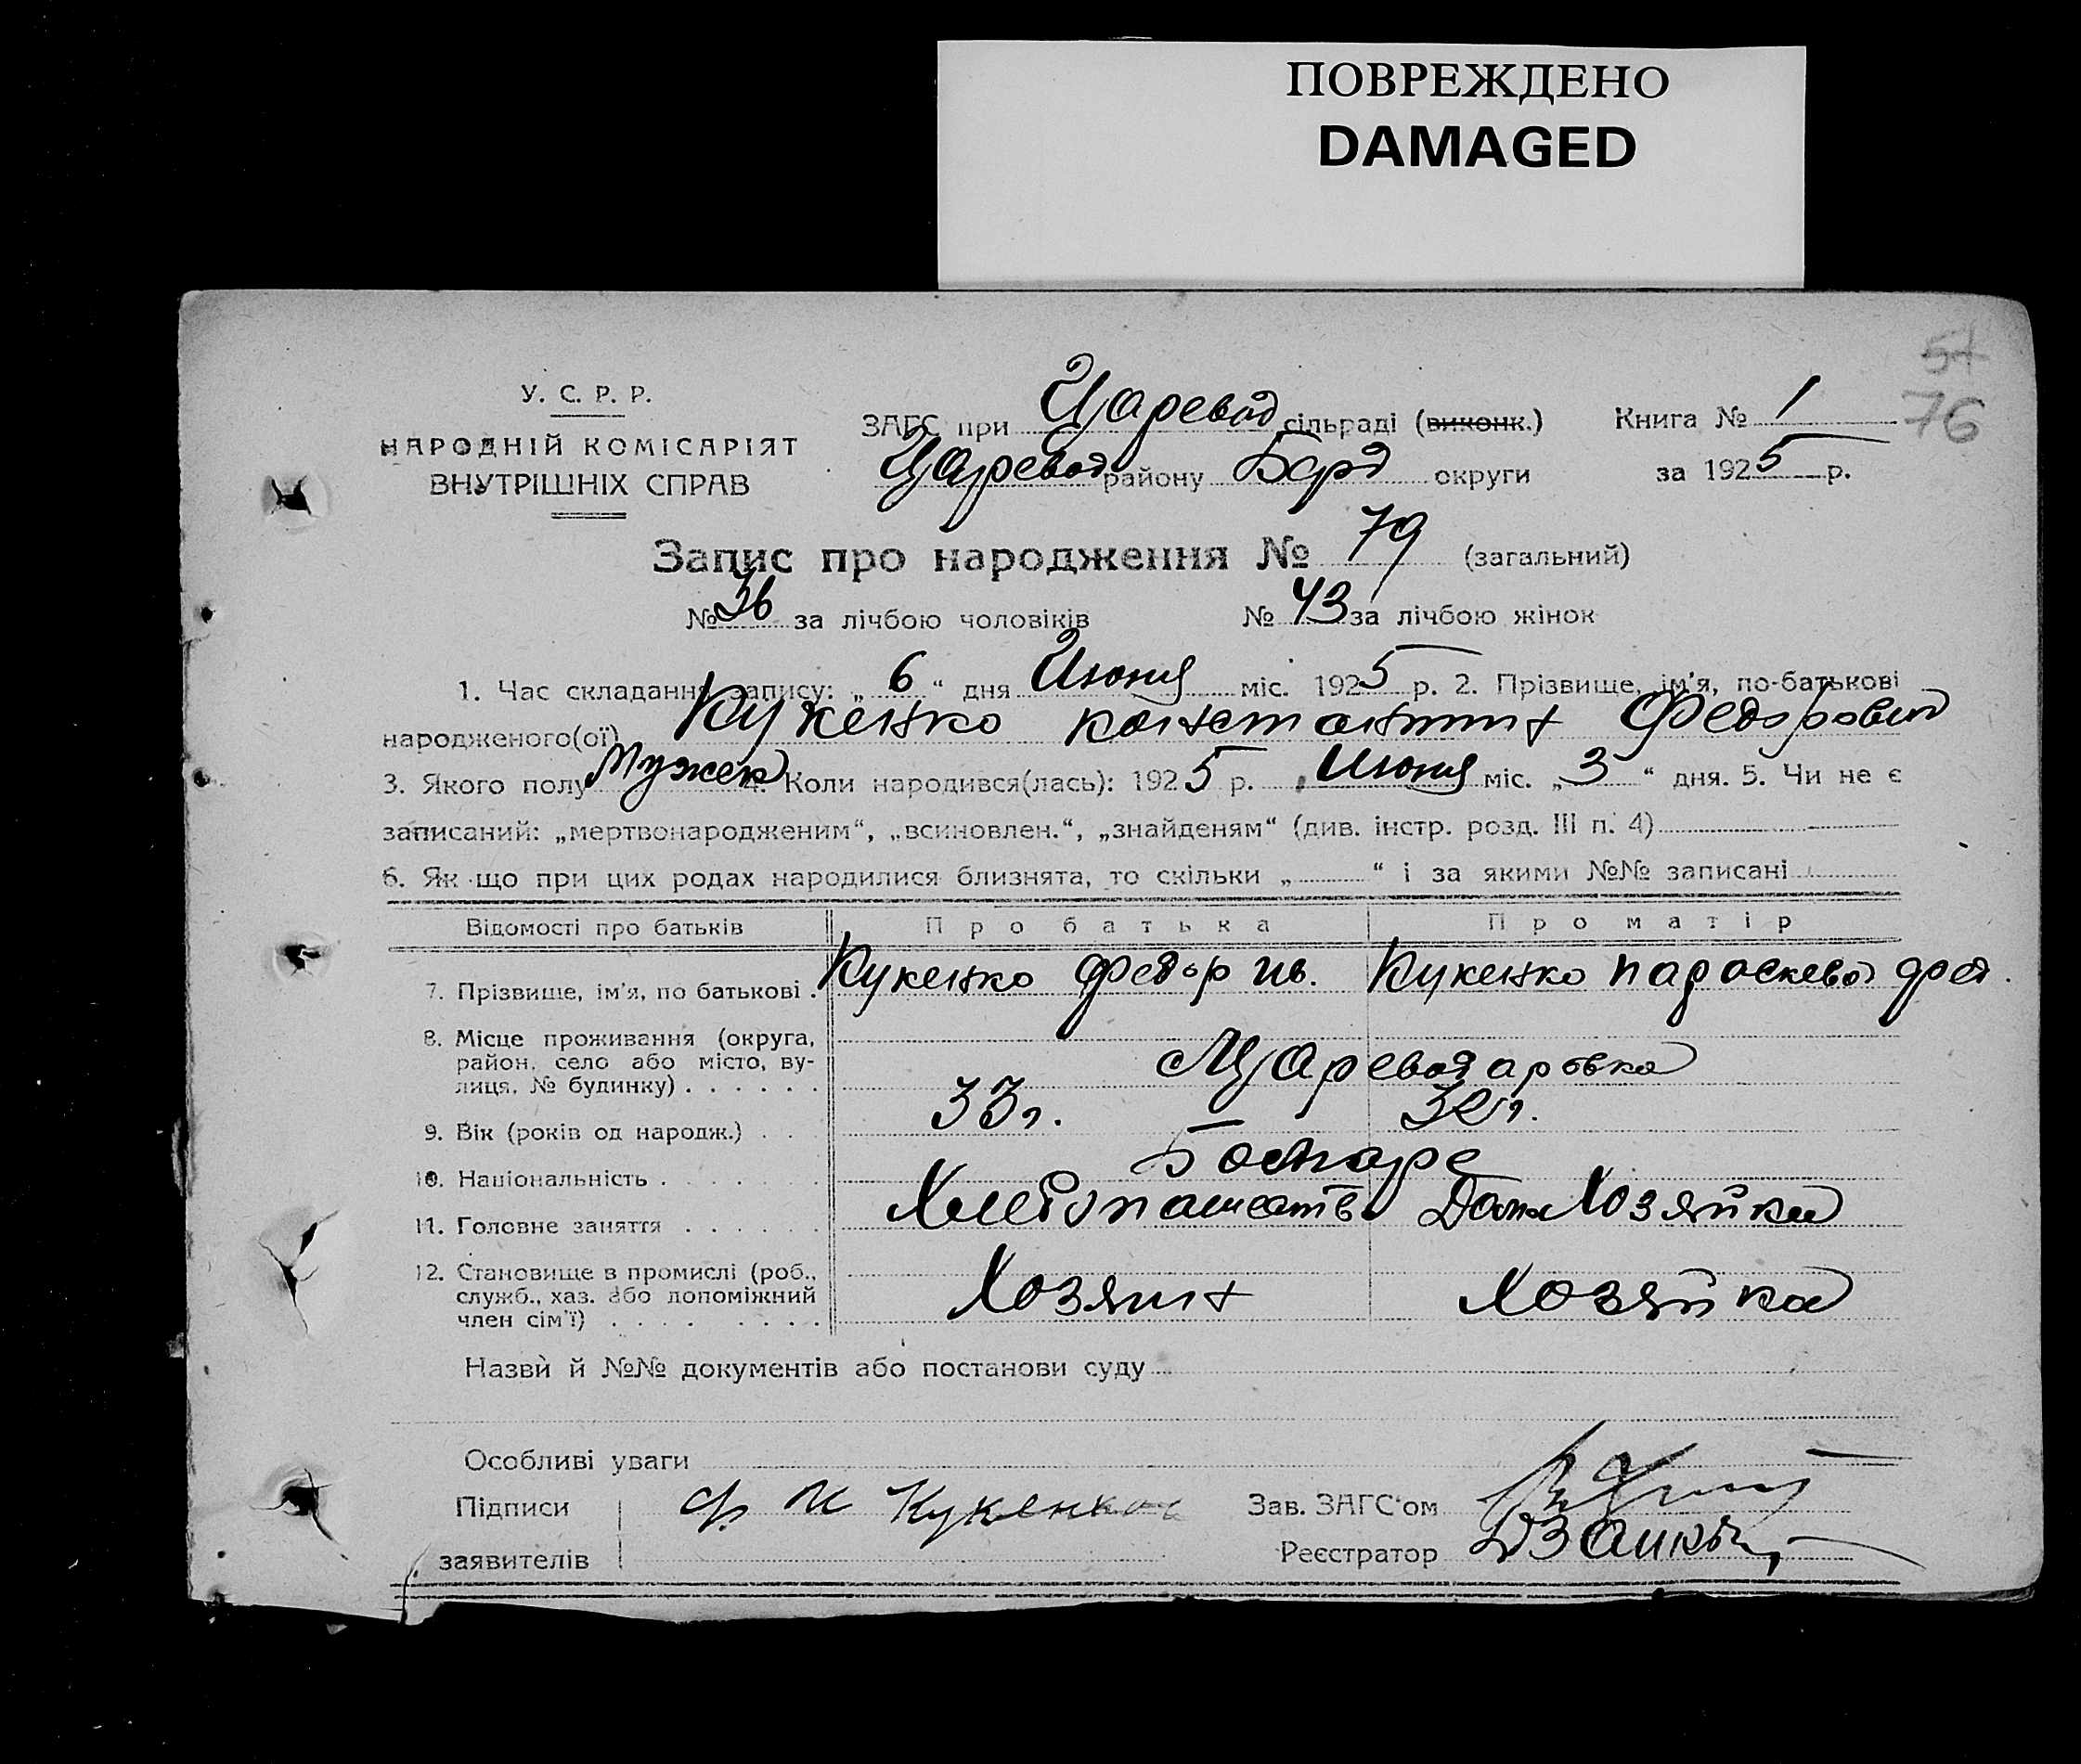 ПОВРЕЖДЕНО
DAMAGED
54
76
У. С. Р. Р.
НАРОДНІЙ КОМІСАРІЯТ
ВНУТРІШНІХ СПРАВ
ЗАГС при Царевод сільраді (виконк.) Книга № 1
Царевод району Берд округи за 1925 р.
Запис про народження № 79 (загальний)
№ 36 за лічбою чоловіків № 43 за лічбою жінок
1. Час складання запису: „ 6 “ дня Июня міс. 1925 р. 2. Прізвище, ім’я, по-батькові
народженого(ої) Кукенко Константин Федорович
3. Якого полу Мужск 4. Коли народився(лась): 1925 р. Июня міс. „ 3 “ дня. 5. Чи не є
записаний: „мертвонародженим“, „всиновлен.“, „знайденям“ (див. інстр. розд. III п. 4)
6. Як що при цих родах народилися близнята, то скільки „ “ і за якими №№ записані
Відомості про батьків Про батька Про матір
7. Прізвище, ім’я, по батькові . Кукенко Федор Ив. Кукенко Параскева Фед.
8. Місце проживання (округа,
район, село або місто, ву-
лиця, № будинку) . . . . . . Цареводаровка
9. Вік (років од народж.) . . . 33 г. 32 г.
10. Національність . . . . . . .
11. Головне заняття . . . . . . Хлебопашеств Дом Хозяйка
12. Становище в промислі (роб.,
служб., хаз. або допоміжний
член сім’ї) . . . . . . . . Хозяин Хозяйка
Назви й №№ документів або постанови суду
Особливі уваги
Підписи Ф И Кукенко Зав. ЗАГС’ом
заявителів Реєстратор